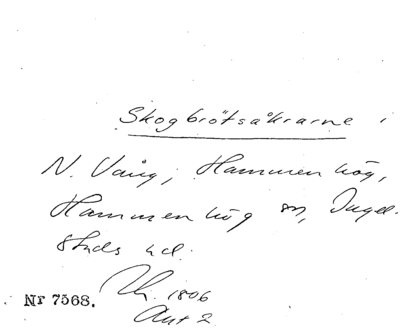 Skogbrötsåkrarne i
N. Vång, Hammenhög,
Hammenhög sn, Ingel-
stads hd.
Nr 7568. 1806
Akt 2